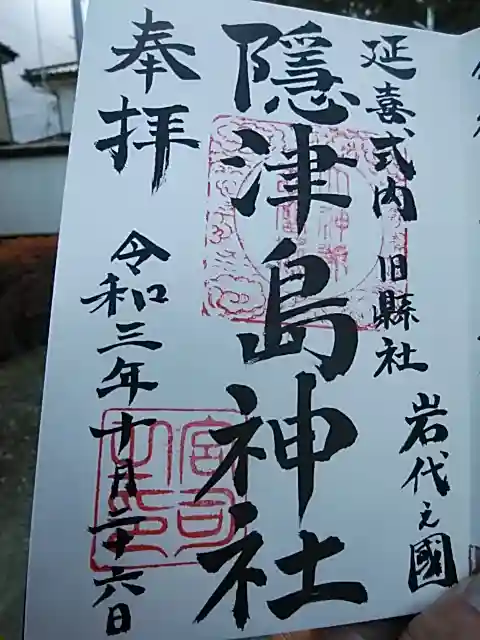 延喜式内 旧縣社 岩代之國
隱津島神社
奉拝
令和三年十月二十六日
宮司之印